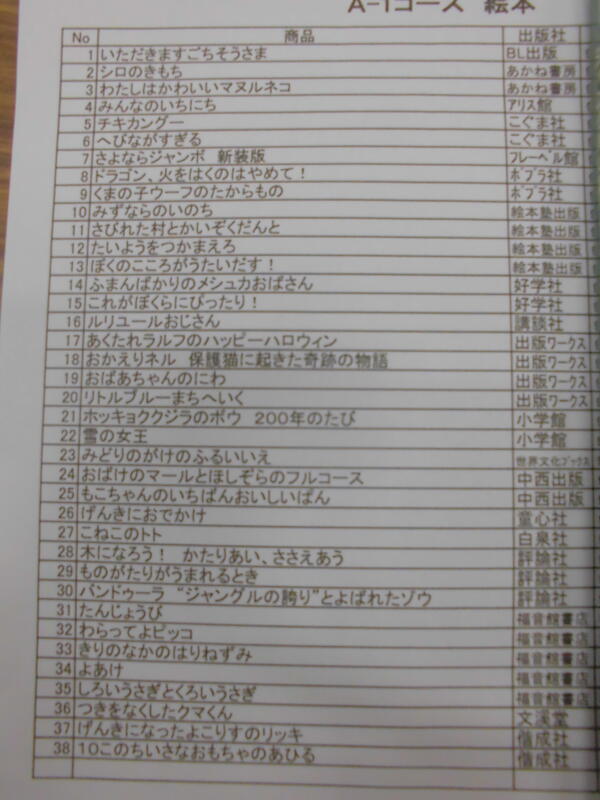 A-1コース 絵本
No 商品 出版社
1 いただきますごちそうさま BL出版
2 シロのきもち あかね書房
3 わたしはかわいいマヌルネコ あかね書房
4 みんなのいちにち アリス館
5 チキカングー こぐま社
6 へびながすぎる こぐま社
7 さよならジャンボ 新装版 フレーベル館
8 ドラゴン、火をはくのはやめて! ポプラ社
9 くまの子ウーフのたからもの ポプラ社
10 みずならのいのち 絵本塾出版
11 さびれた村とかいぞくだんと 絵本塾出版
12 たいようをつかまえろ 絵本塾出版
13 ぼくのこころがうたいだす! 絵本塾出版
14 ふまんばかりのメシュカおばさん 好学社
15 これがぼくらにぴったり! 好学社
16 ルリユールおじさん 講談社
17 あくたれラルフのハッピーハロウィン 出版ワークス
18 おかえりネル 保護猫に起きた奇跡の物語 出版ワークス
19 おばあちゃんのにわ 出版ワークス
20 リトルブルーまちへいく 出版ワークス
21 ホッキョククジラのボウ 200年のたび 小学館
22 雪の女王 小学館
23 みどりのがけのふるいいえ 世界文化ブックス
24 おばけのマールとほしぞらのフルコース 中西出版
25 もこちゃんのいちばんおいしいぱん 中西出版
26 げんきにおでかけ 童心社
27 こねこのトト 白泉社
28 木になろう! かたりあい、ささえあう 評論社
29 ものがたりがうまれるとき 評論社
30 バンドゥーラ “ジャングルの誇り”とよばれたゾウ 評論社
31 たんじょうび 福音館書店
32 わらってよピッコ 福音館書店
33 きりのなかのはりねずみ 福音館書店
34 よあけ 福音館書店
35 しろいうさぎとくろいうさぎ 福音館書店
36 つきをなくしたクマくん 文溪堂
37 げんきになったよこりすのリッキ 偕成社
38 10このちいさなおもちゃのあひる 偕成社